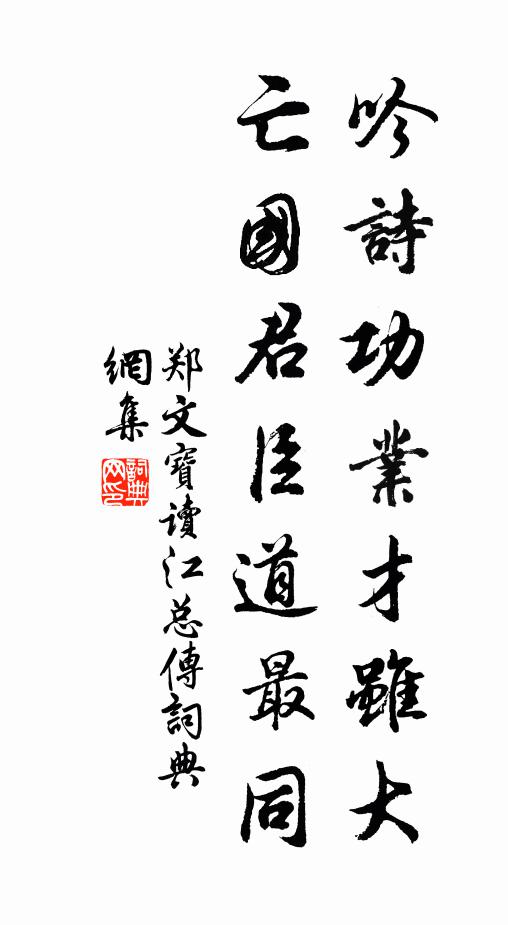 吟詩功業才雖大
亡國君臣道最同
郑文寶读江总傳詞典
網集
詞典
网印